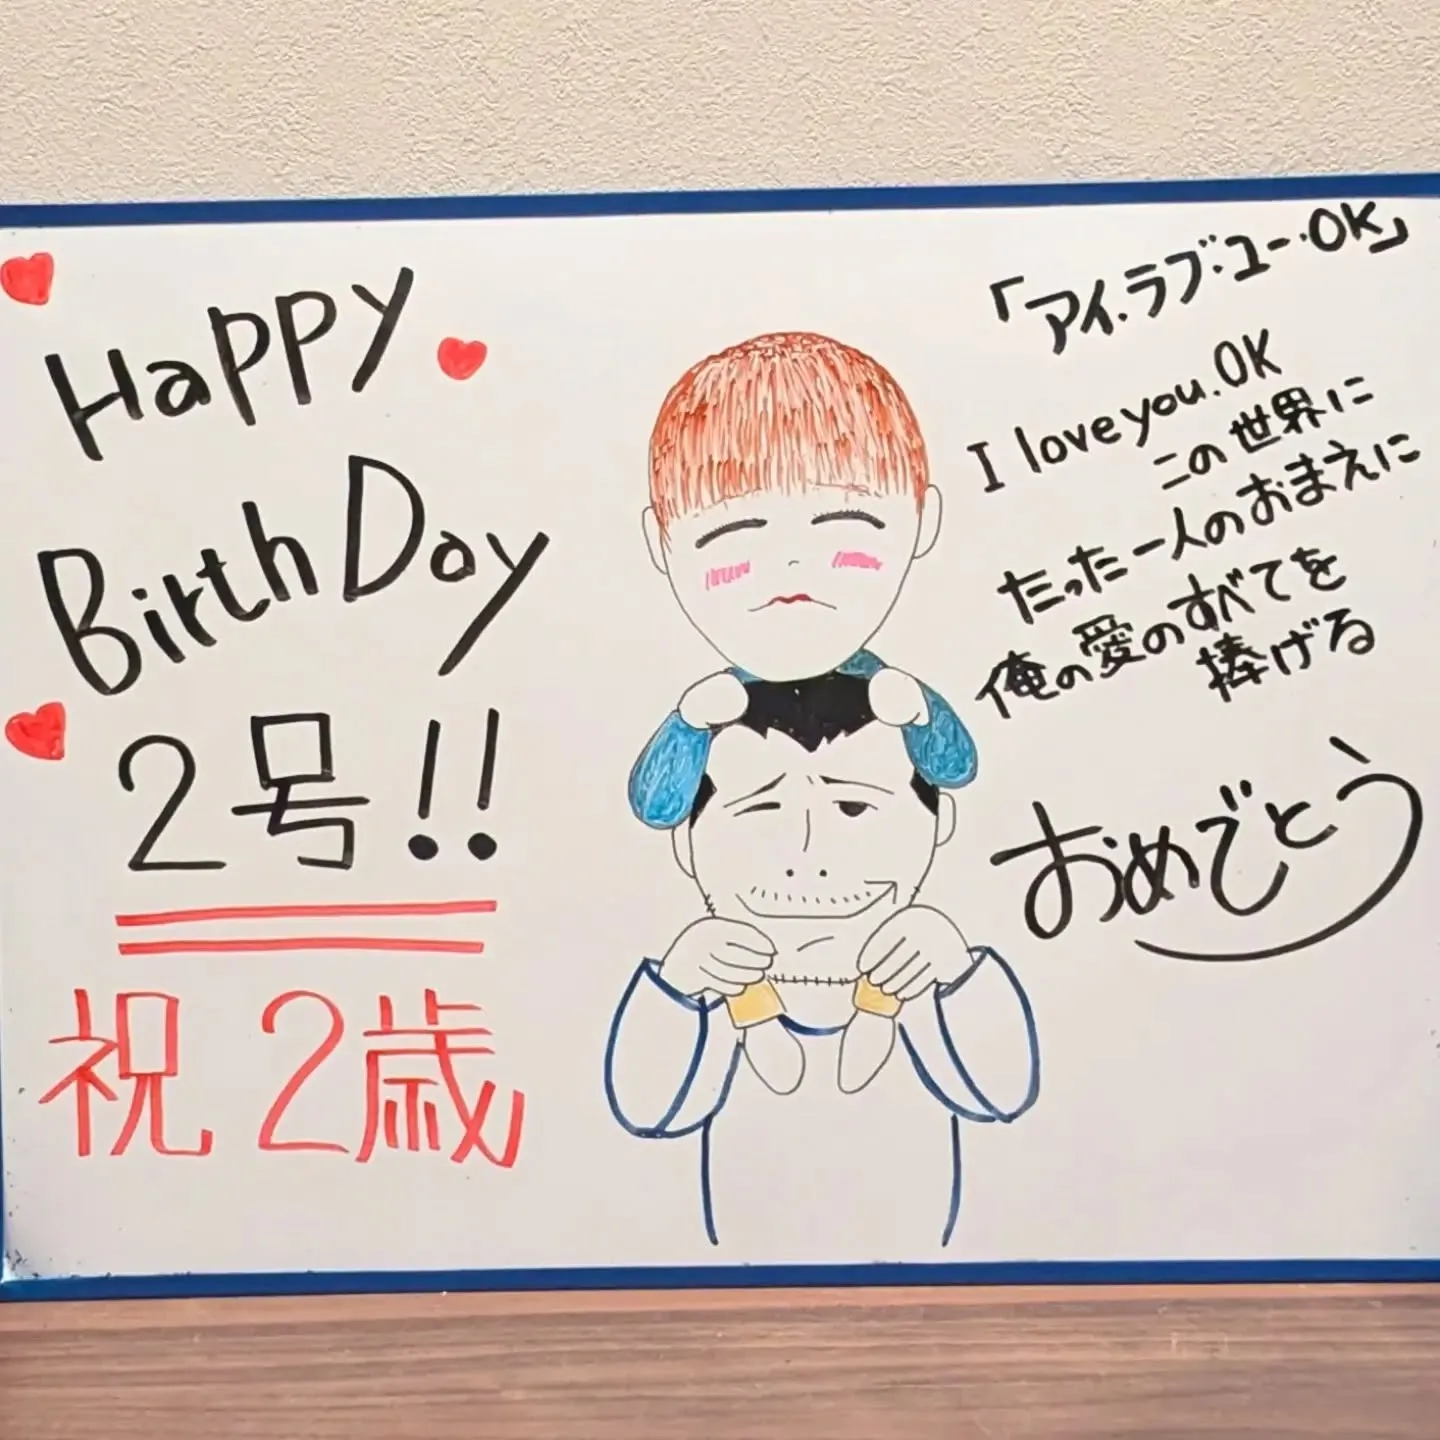 Happy
BirthDay
2号!!
祝 2歳
「アイ.ラブ.ユー.OK」
I love you.OK
この世界に
たった一人のおまえに
俺の愛のすべてを
捧げる
おめでとう